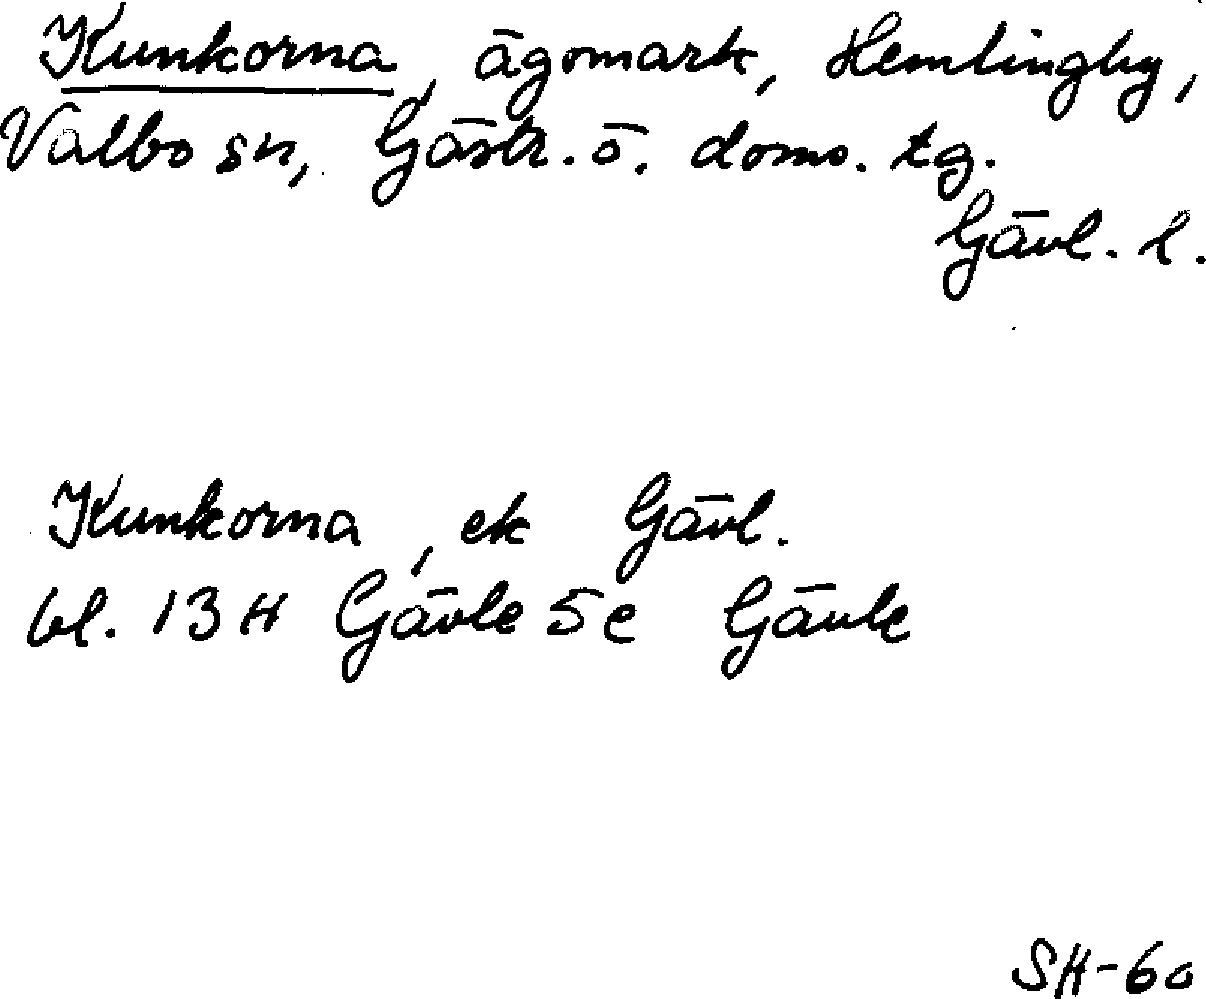 Kunkorna, ägomark, Hemlingby,
Valbo sn, Gästr. ö. doms. tg.
Gävl. l.
Kunkorna, ek Gävl.
bl. 13 H Gävle 5 e Gävle
SH-60